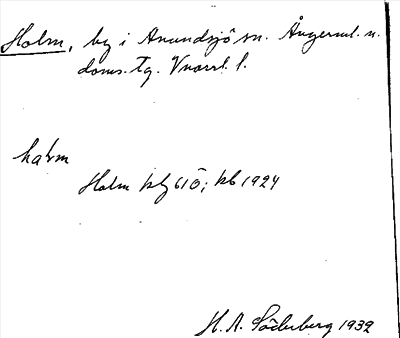 Holm, by i Anundsjö sn. Ångerml. n.
doms. Tg. Vnorrl. l.
halm
Holm kbj 61Ö; kb 1924
H. A. Söderberg 1932